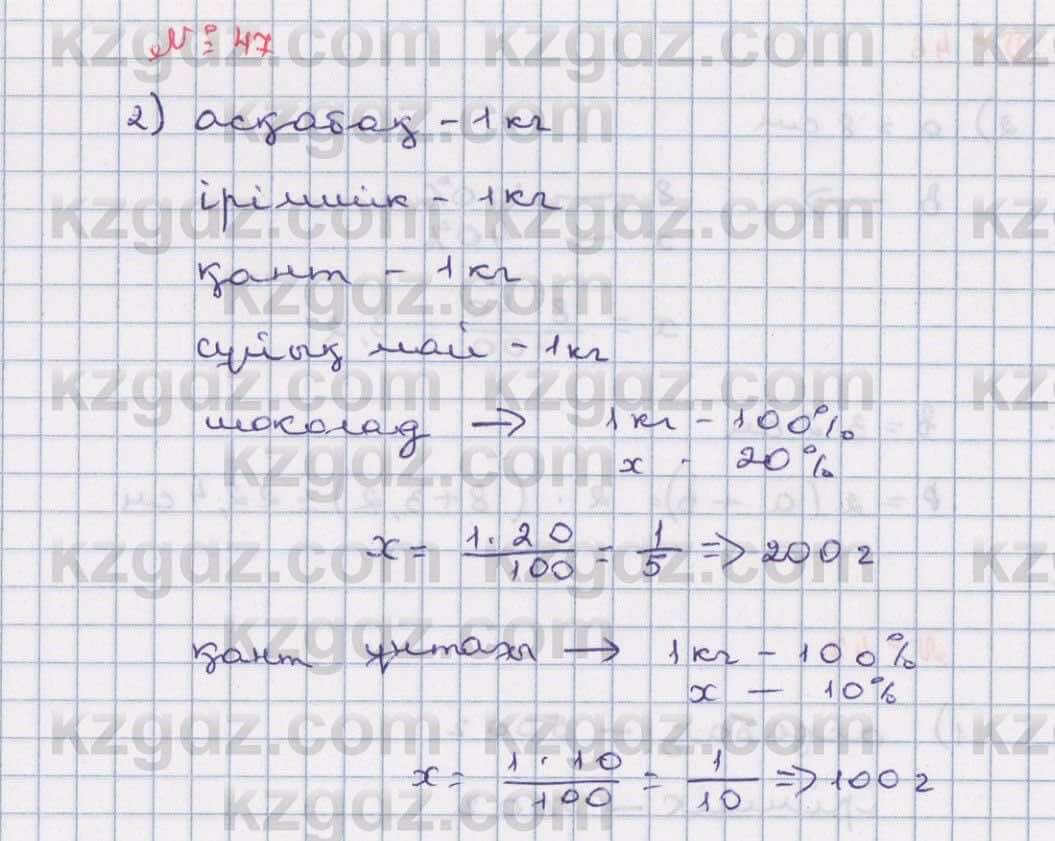 № 47
2) асқабақ - 1 кг
ірімшік - 1 кг
қант - 1 кг
сұйық май - 1 кг
шоколад → 1 кг - 100%
x - 20%
x = \frac{1 · 20}{100} = \frac{1}{5} => 200 г
қант ұнтағы → 1 кг - 100%
x - 10%
x = \frac{1 · 10}{100} = \frac{1}{10} => 100 г
kzgdz.com